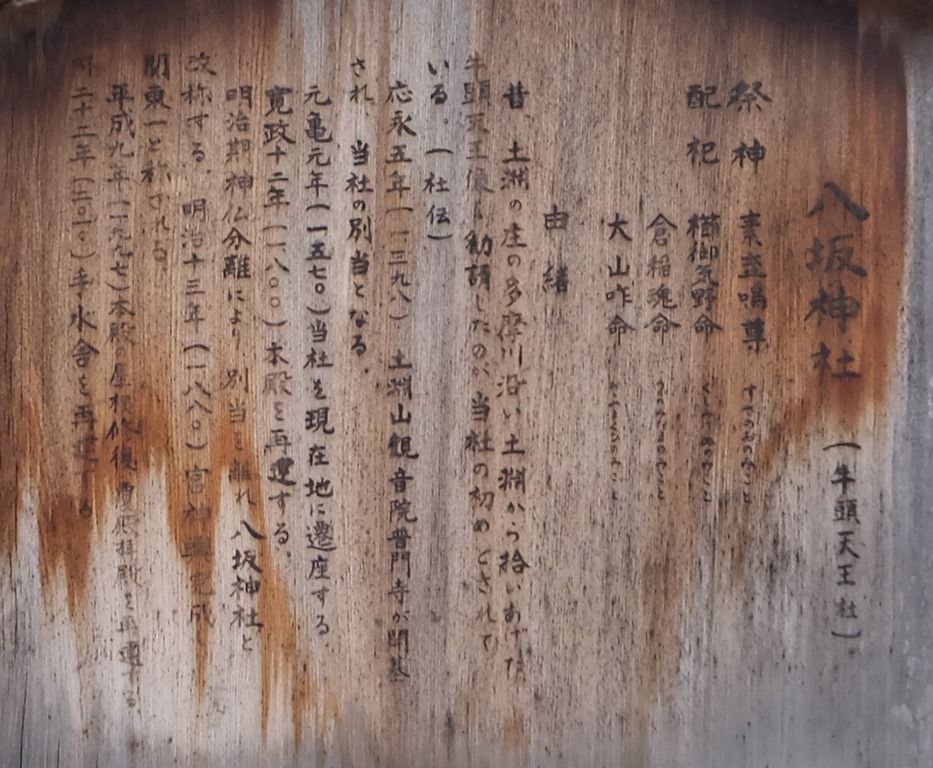 八坂神社(牛頭天王社)
祭神 素盞嗚尊 すさのおのみこと
配祀 櫛御気野命 くしみけぬのみこと
倉稲魂命 うかのみたまのみこと
大山咋命 おおやまくいのみこと
由緒
昔、土淵の庄の多摩川沿い土淵から拾いあげた
牛頭天王像を勧請したのが、当社の初めとされて
いる。(社伝)
応永五年(一三九八)土淵山観音院普門寺が開基
され、当社の別当となる。
元亀元年(一五七〇)当社を現在地に遷座する。
寛政十二年(一八〇〇)本殿を再建する。
明治期神仏分離により 別当を離れ 八坂神社と
改称する。明治十三年(一八八〇)宮神輿完成
関東一と称される。
平成九年(一九九七)本殿の屋根修復 覆殿拝殿を再建する
二十二年(二〇一〇)手水舎を再建する